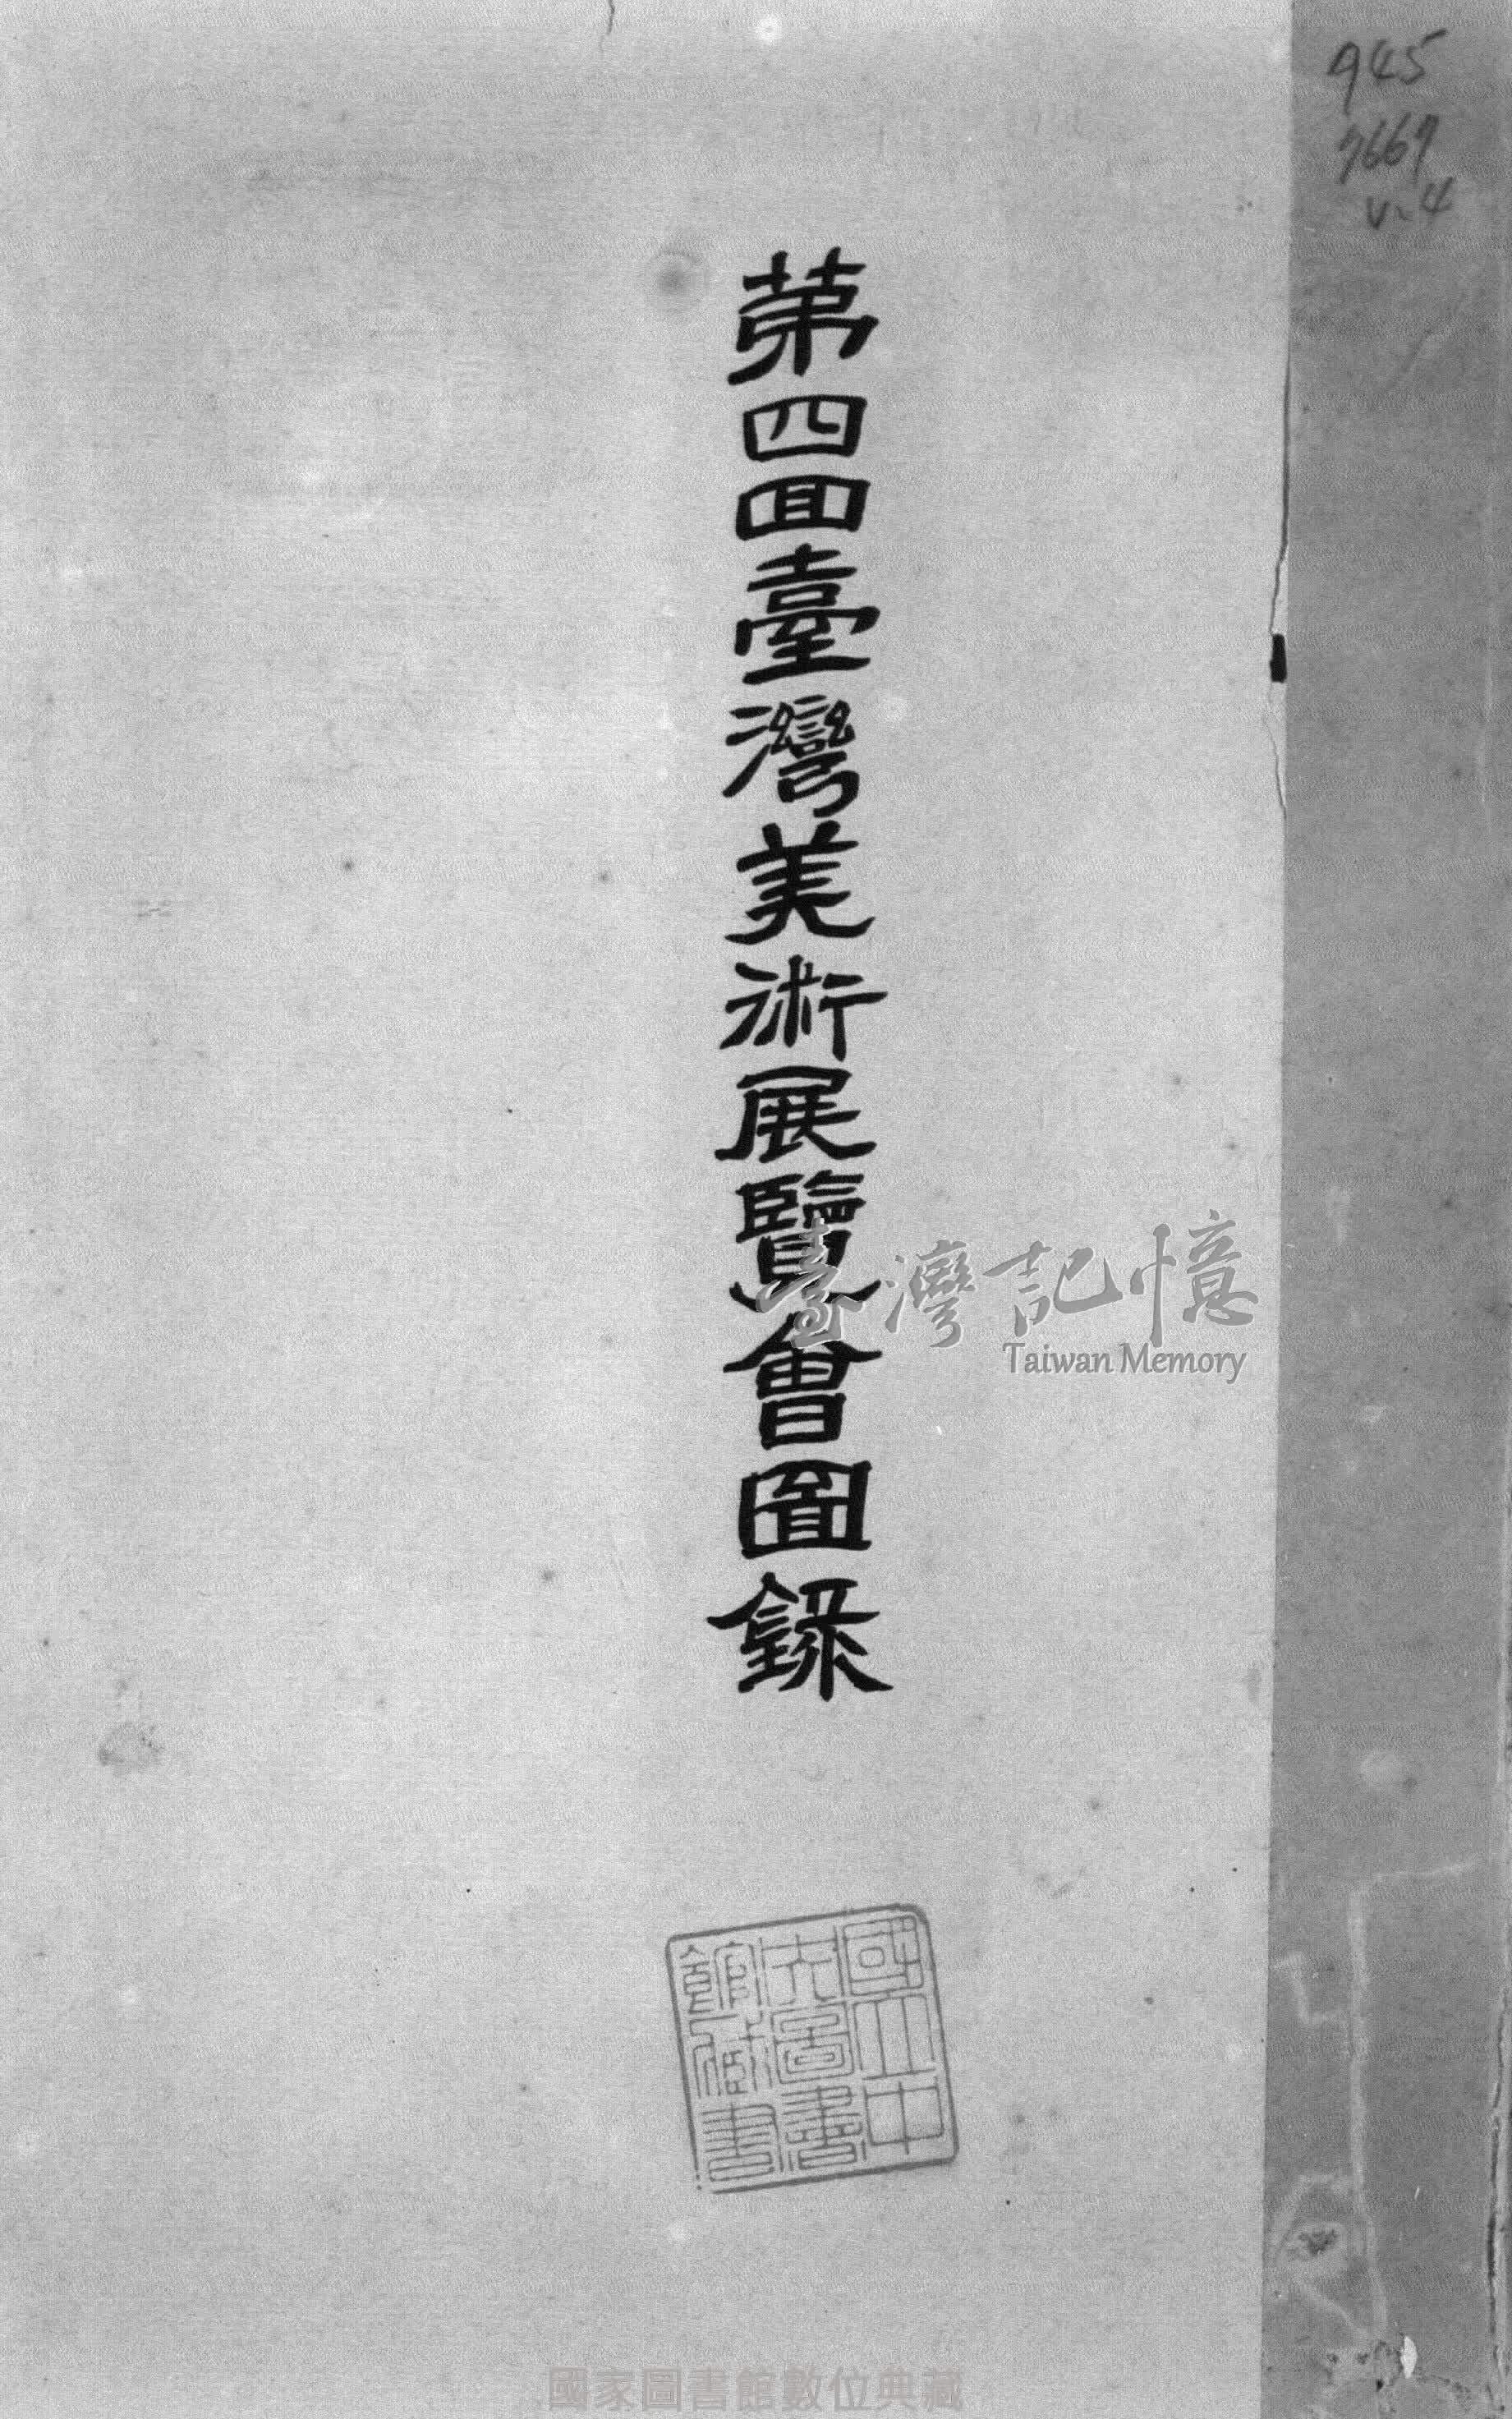 945
7667
v.4
第四回臺灣美術展覽會圖錄
臺灣記憶
Taiwan Memory
國立中
央圖書
館藏書
國家圖書館數位典藏